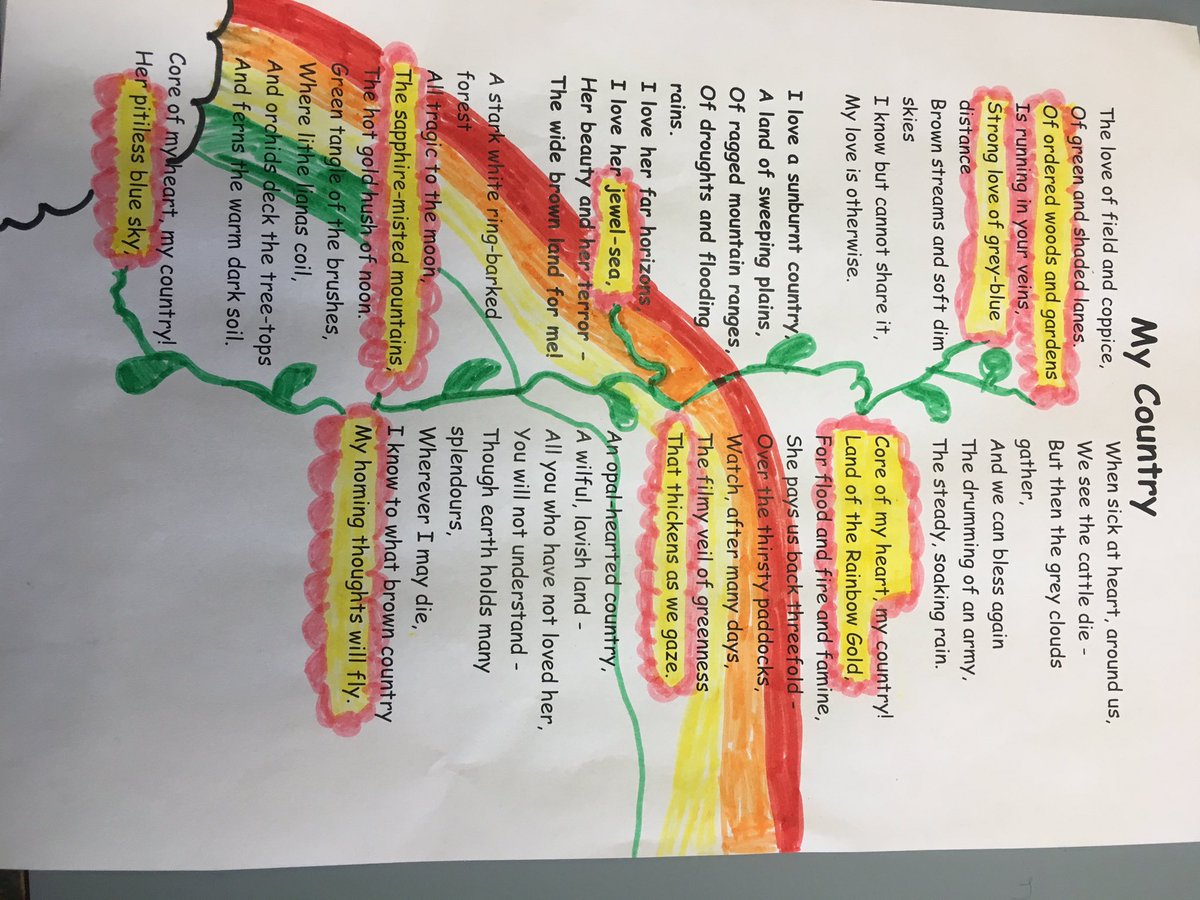 My Country
The love of field and coppice,
Of green and shaded lanes.
Of ordered woods and gardens
Is running in your veins,
Strong love of grey-blue
distance
Brown streams and soft dim
skies
I know but cannot share it,
My love is otherwise.
I love a sunburnt country,
A land of sweeping plains,
Of ragged mountain ranges,
Of droughts and flooding
rains.
I love her far horizons,
I love her jewel-sea,
Her beauty and her terror -
The wide brown land for me!
A stark white ring-barked
forest
All tragic to the moon,
The sapphire-misted mountains,
The hot gold hush of noon.
Green tangle of the brushes,
Where lithe lianas coil,
And orchids deck the tree-tops
And ferns the warm dark soil.
Core of my heart, my country!
Her pitiless blue sky,
When sick at heart, around us,
We see the cattle die -
But then the grey clouds
gather,
And we can bless again
The drumming of an army,
The steady, soaking rain.
Core of my heart, my country!
Land of the Rainbow Gold,
For flood and fire and famine,
She pays us back threefold -
Over the thirsty paddocks,
Watch, after many days,
The filmy veil of greenness
That thickens as we gaze.
An opal-hearted country,
A wilful, lavish land -
All you who have not loved her,
You will not understand -
Though earth holds many
splendours,
Wherever I may die,
I know to what brown country
My homing thoughts will fly.